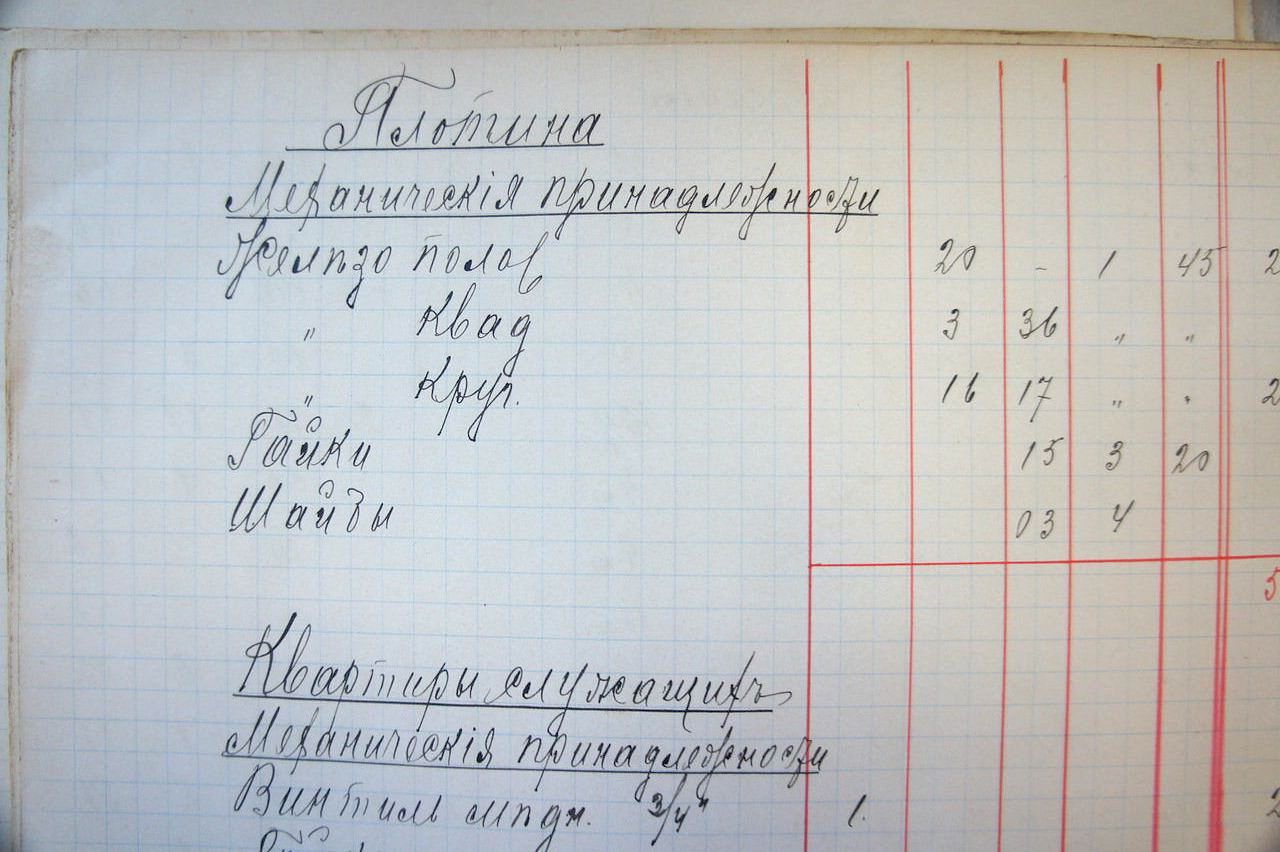 Плотина
Механическія принадлежности
Желѣзо полов 20 - 1 45 2
„ Квад 3 36 „ „
„ Круг. 16 17 „ „ 2
Гайки 15 3 20
Шайбы 03 4
5
Квартиры служащихъ
Механическія принадлежности
Винтиль мѣдн. 3/4" 1. 2